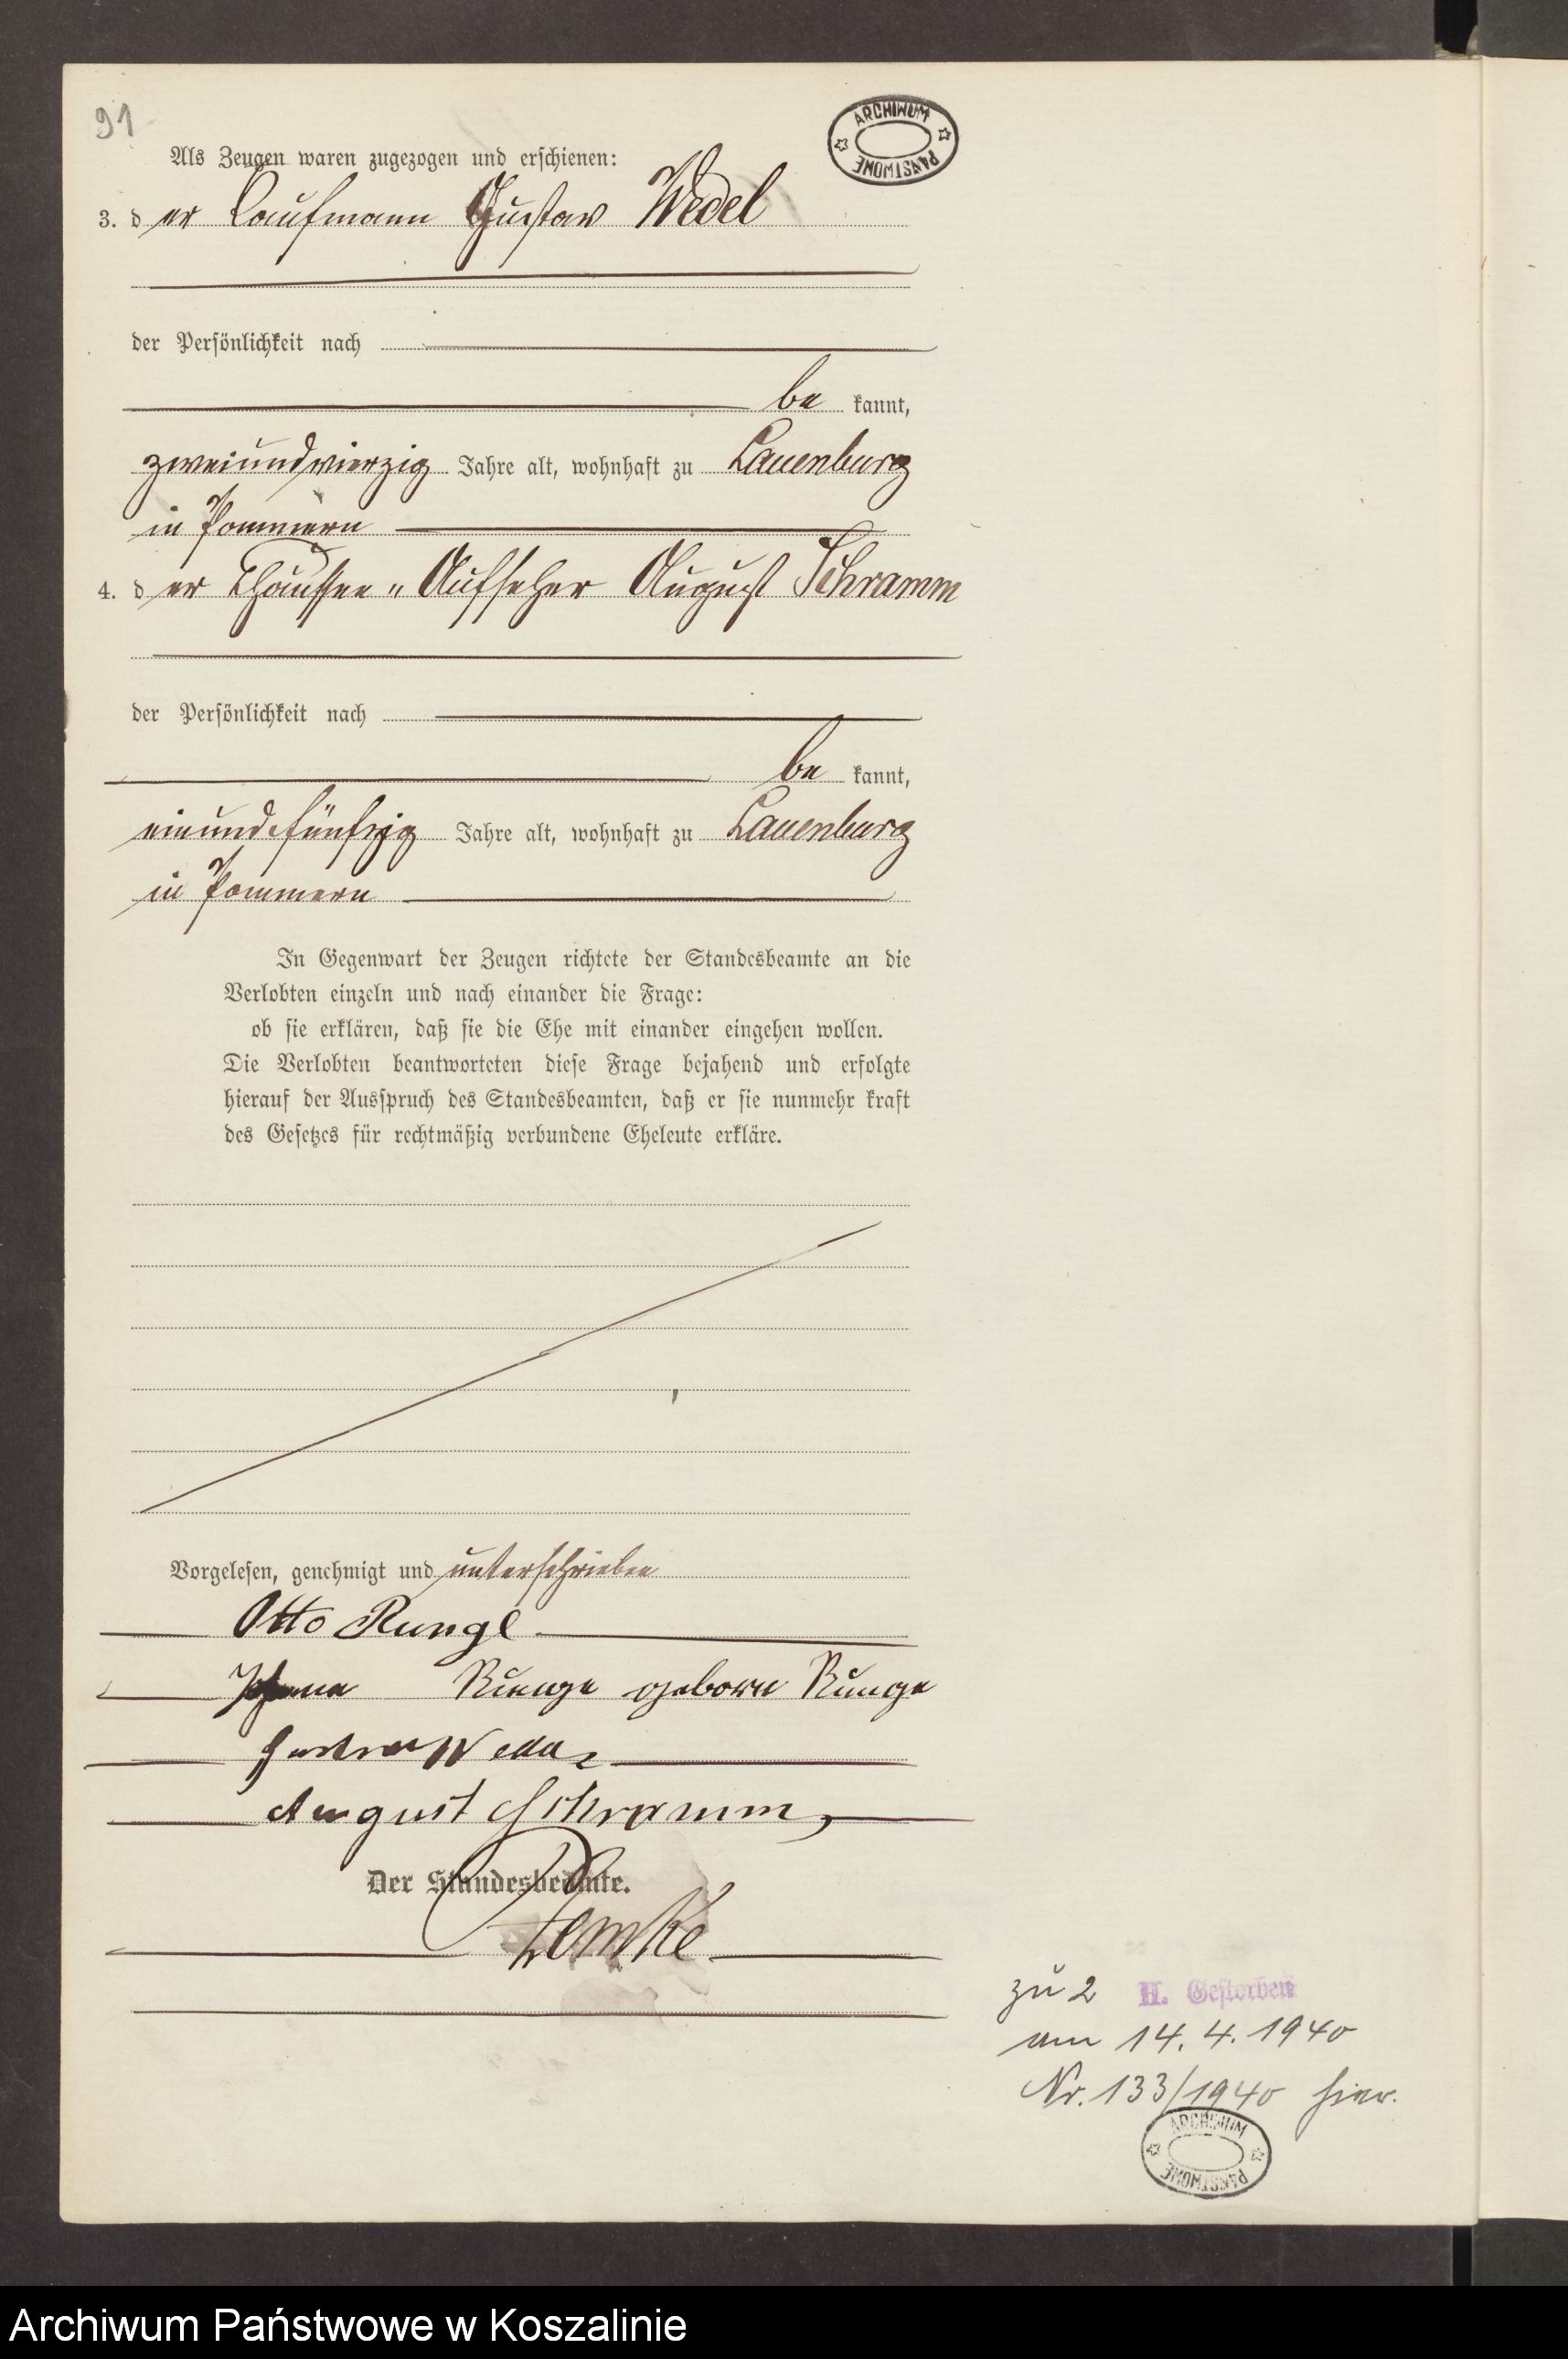 91
ARCHIWUM PAŃSTWOWE
Als Zeugen waren zugezogen und erschienen:
3. der Kaufmann Gustav Wedel
der Persönlichkeit nach
be kannt,
zweiundvierzig Jahre alt, wohnhaft zu Lauenburg
in Pommern
4. der Chaussee-Aufseher August Schramm
der Persönlichkeit nach
be kannt,
einundfünfzig Jahre alt, wohnhaft zu Lauenburg
in Pommern
In Gegenwart der Zeugen richtete der Standesbeamte an die
Verlobten einzeln und nach einander die Frage:
ob sie erklären, daß sie die Ehe mit einander eingehen wollen.
Die Verlobten beantworteten diese Frage bejahend und erfolgte
hierauf der Ausspruch des Standesbeamten, daß er sie nunmehr kraft
des Gesetzes für rechtmäßig verbundene Eheleute erkläre.
Vorgelesen, genehmigt und unterschrieben
Otto Runge
Runge geborn Runge
Gustav Wedel
August Schramm
Der Standesbeamte.
Lemke
zu 2 H. Gestorben
am 14. 4. 1940
Nr. 133/1940 hier.
ARCHIWUM PAŃSTWOWE
Archiwum Państwowe w Koszalinie